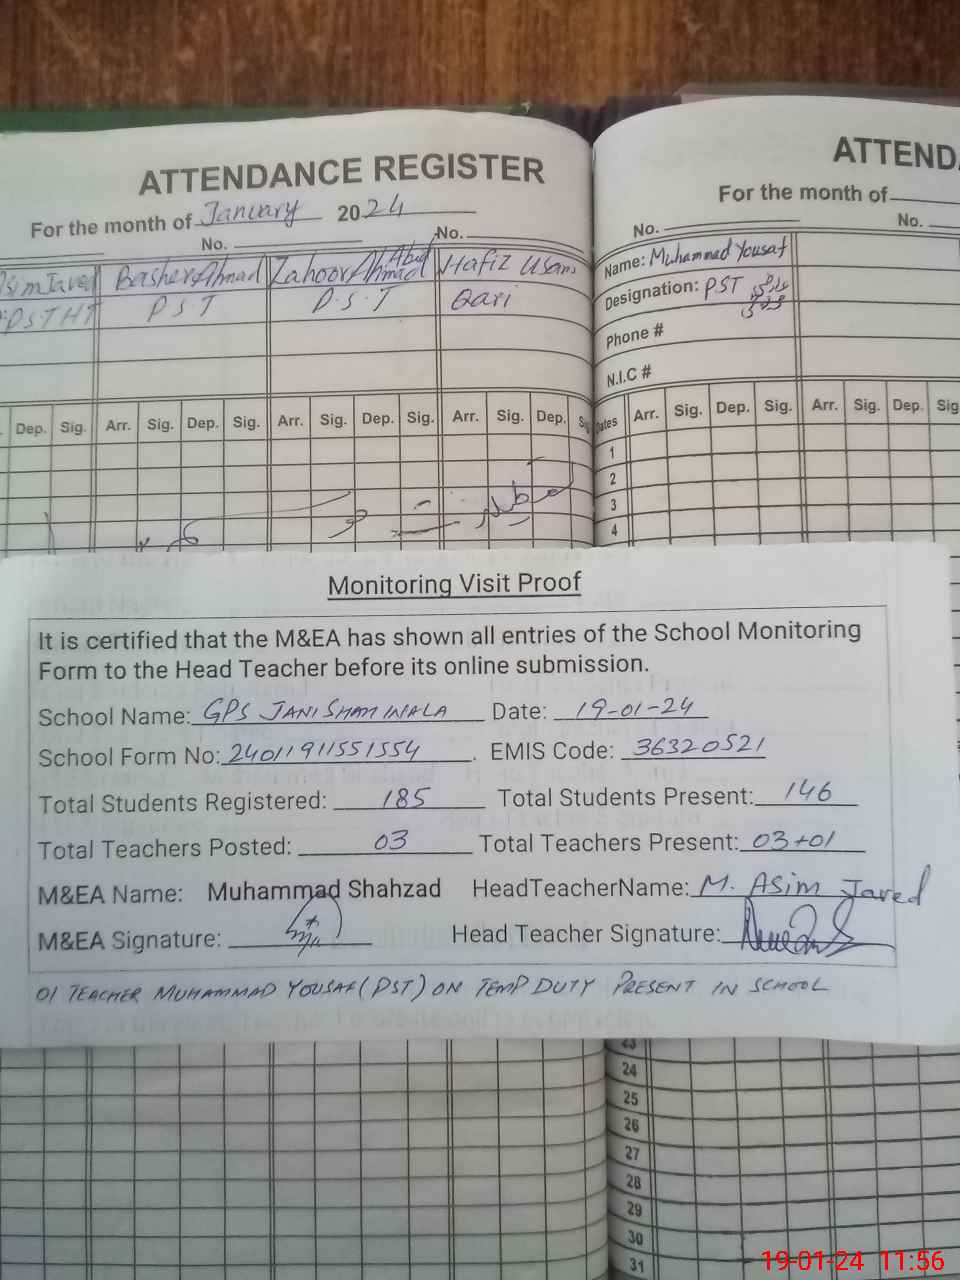 ATTENDANCE REGISTER
For the month of January 2024
No. No.
Asim Javed Basher Ahmad Zahoor Ahmad Abid Hafiz Usam
PSTHT P.S.T P.S.T Qari
Dep. Sig. Arr. Sig. Dep. Sig. Arr. Sig. Dep. Sig. Arr. Sig. Dep.
ATTEND
For the month of
No. No.
Name: Muhammad Yousaf
Designation: PST
Phone #
N.I.C #
Dates Arr. Sig. Dep. Sig. Arr. Sig. Dep. Sig
1
2
3
4
Monitoring Visit Proof
It is certified that the M&EA has shown all entries of the School Monitoring
Form to the Head Teacher before its online submission.
School Name: GPS JANI SHAH WALA Date: 19-01-24
School Form No: 24011911551554. EMIS Code: 36320521
Total Students Registered: 185 Total Students Present: 146
Total Teachers Posted: 03 Total Teachers Present: 03+01
M&EA Name: Muhammad Shahzad HeadTeacherName: M. Asim Javed
M&EA Signature: Head Teacher Signature:
01 TEACHER MUHAMMAD YOUSAF (PST) ON TEMP DUTY PRESENT IN SCHOOL
23
24
25
26
27
28
29
30
31
19-01-24 11:56